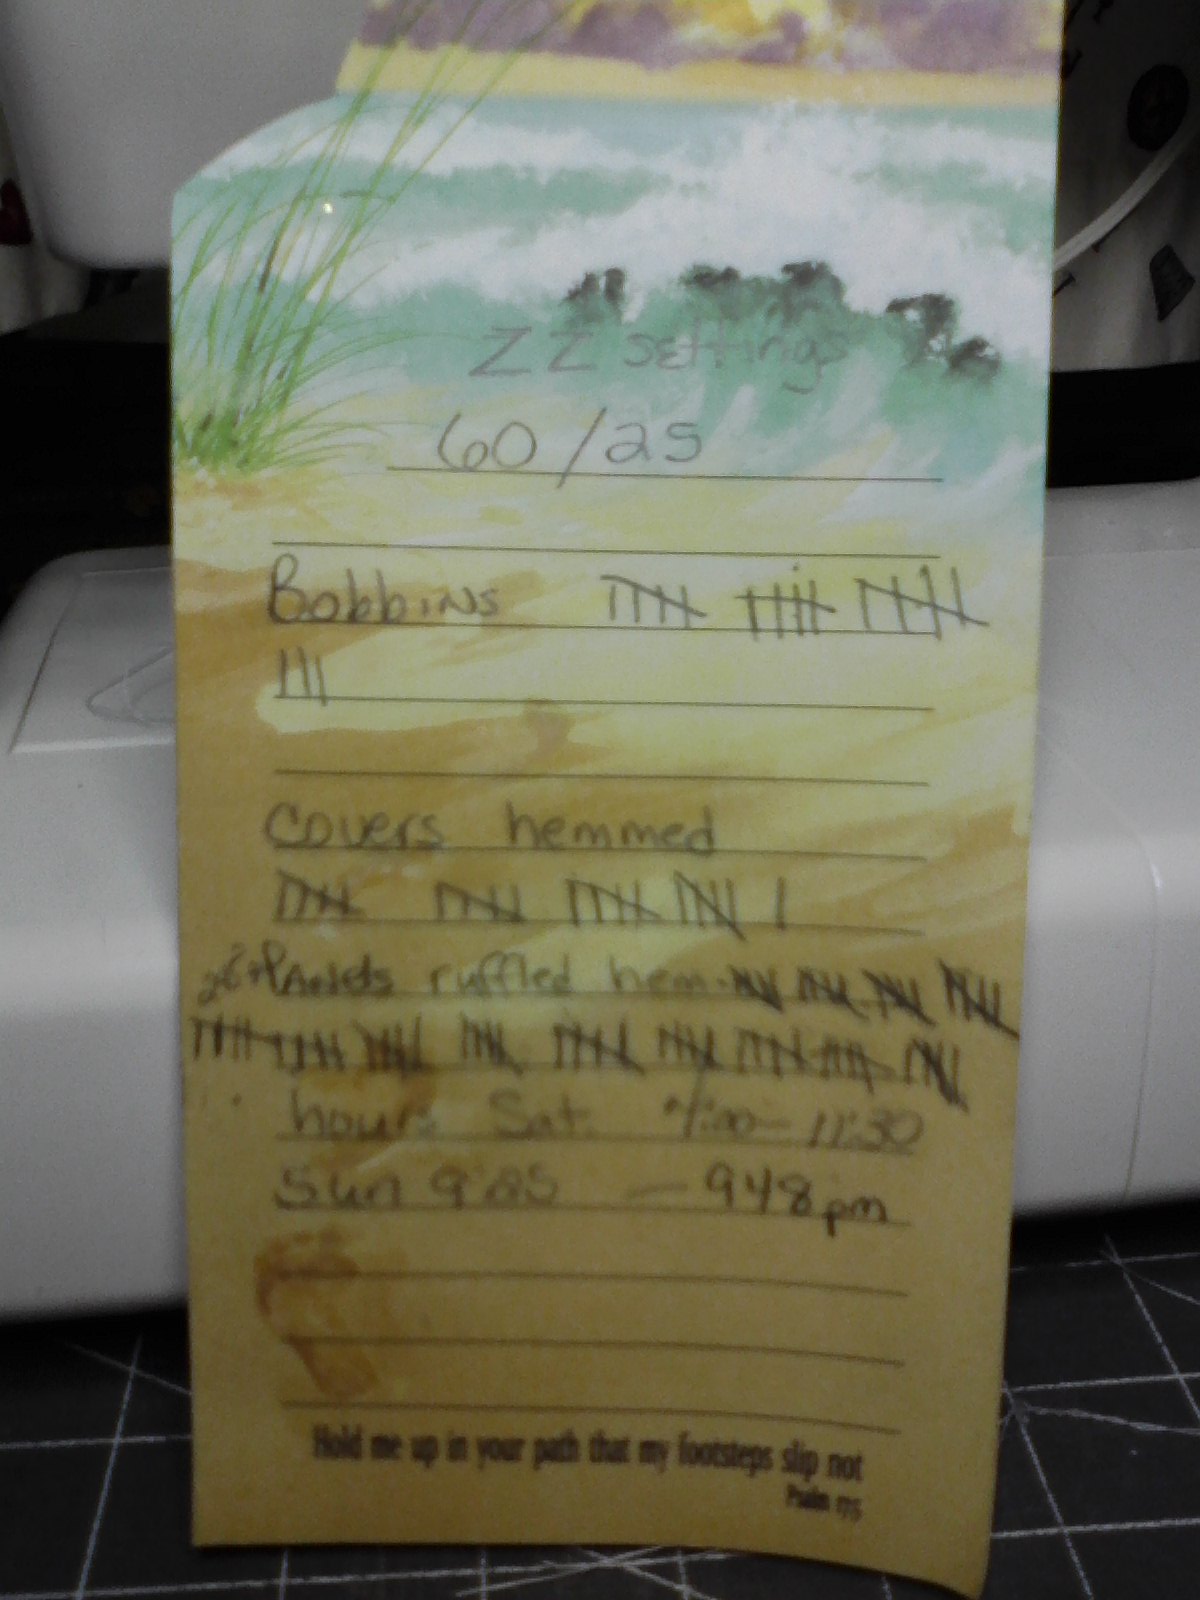 ZZ settings
60/25
Bobbins
III
Covers hemmed
I
ruffled hem.
hours Sat. 7:00 - 11:30
Sun 9:25 - 948 pm
Hold me up in your path that my footsteps slip not
Psalm 17:5